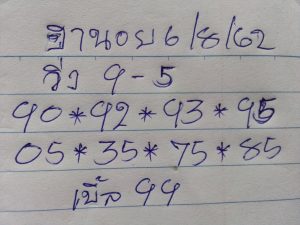 ฮานอย 6/8/62
วิ่ง 9-5
90*92*93*95
05*35*75*85
เบิ้ล 99